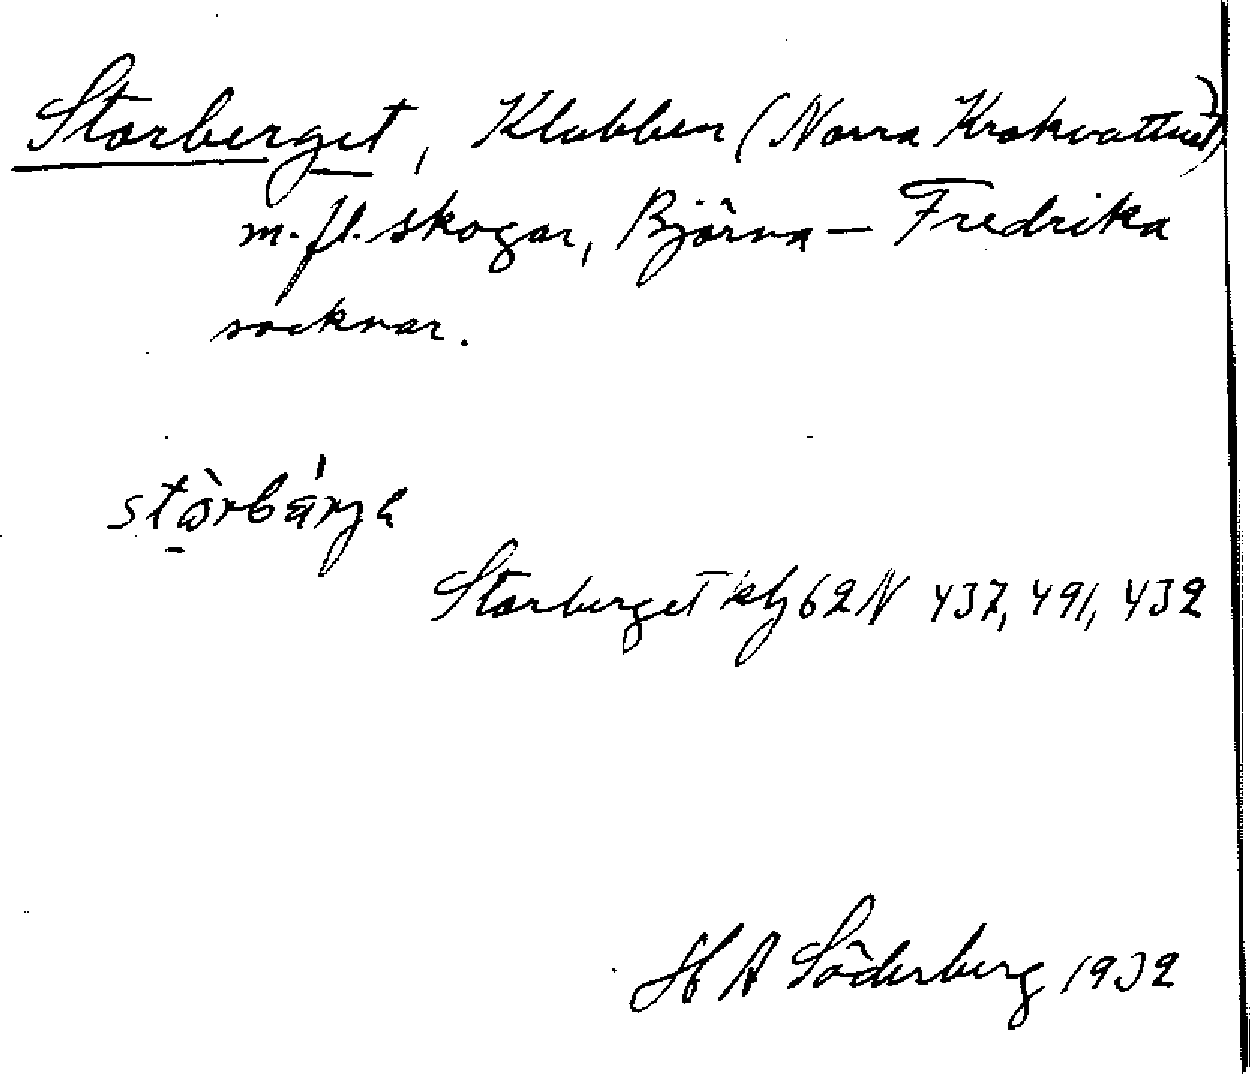 Storberget, Klubben (Norra Krokvattnet)
m.fl. skogar, Björna – Fredrika
socknar.
Storberget kbl 62 N 437, 491, 432
H A Söderberg 1932